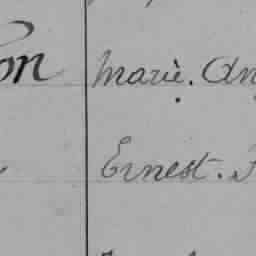 on Marie. An
Ernest.